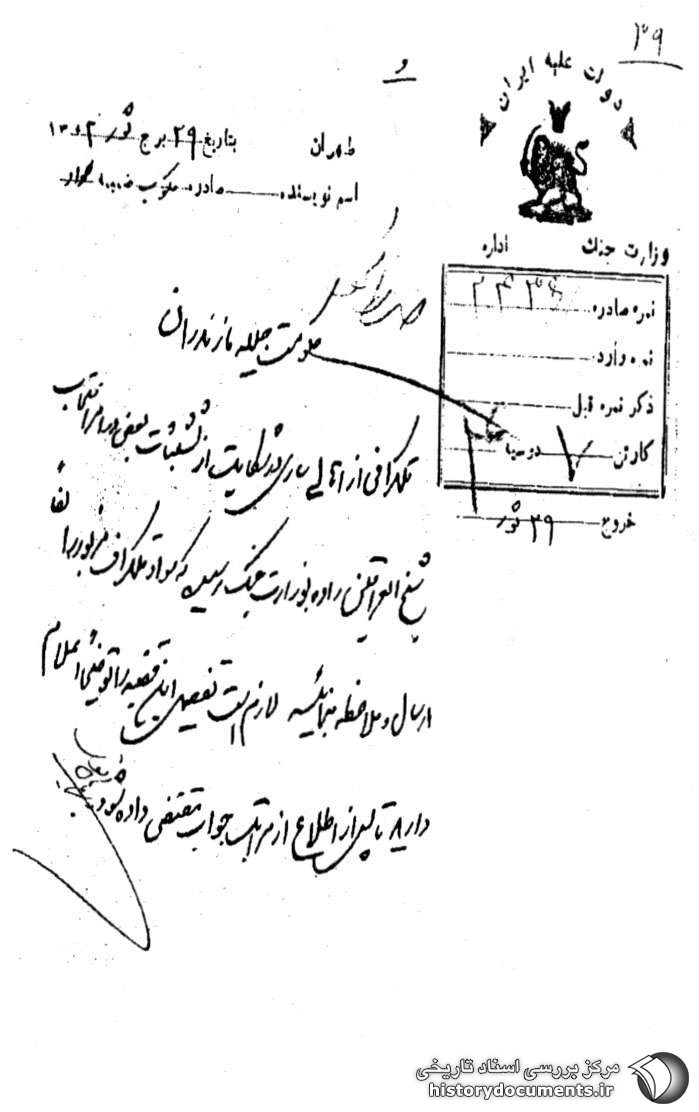 ۳۹
و
دولت علیه ایران
طهران بتاریخ ۲۹ برج ثور ۱۳۰۲
اسم نویسنده صادره مکتوب ضمیمه
وزارت جنگ
اداره
نمره صادره
نمره وارد
ذکر نمره قبل
کارتن ۷ دوسیه
خروج ۲۹ ثور
حکومت جلیله مازندران
تلگرافی از اهالی ساری در شکایت از تشبثات بعضی در امر انتخاب
شیخ العراقین زاده بوزارت جنگ رسیده که سواد تلگراف مزبور را لفاً
ارسال و ملاحظه مینمائید لازم است تفصیل این قضیه را توضیحاً اعلام
دارید تا پس از اطلاع از مراتب جواب مقتضی داده شود
مرکز بررسی اسناد تاریخی
historydocuments.ir